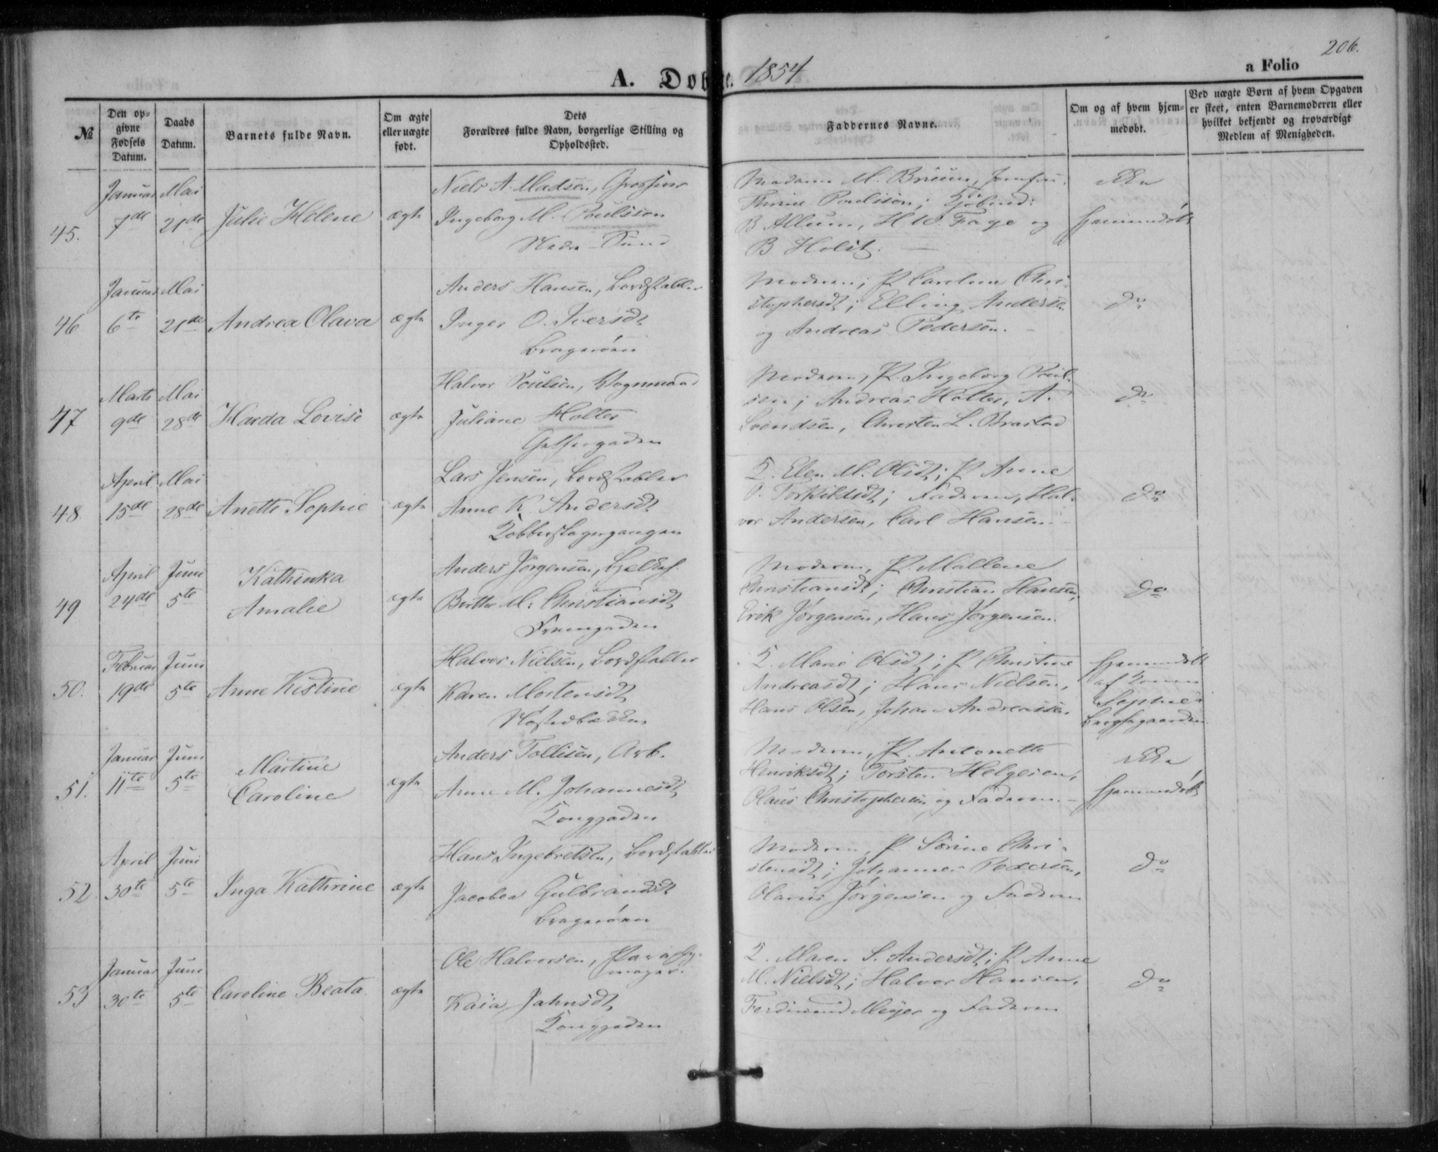 206.
A. Døbte. 1854
a Folio
№
Den op-
givne
Fødsels
Datum.
Daabs
Datum.
Barnets fulde Navn.
Om ægte
eller uægte
født.
Dets
Forældres fulde Navn, borgerlige Stilling og
Opholdssted.
Faddernes Navne.
Om og af hvem hjem-
medøbt.
Ved uægte Børn af hvem Opgaven
er skeet, enten Barnemoderen eller
hvilket bekjendt og troværdigt
Medlem af Menigheden.
45.
Januar
7de
Mai
21de
Julie Helene
ægte
Niels A. Madsen,
Ingeborg M. Poulsson
Nedre-Sund
Madame M. Bruun,
Poulsson;
B Allum, H W. Faye og
B Holst.
Ikke
hjemmedøbt
46
Januar
6te
Mai
21de
Andrea Olava
ægte
Anders Hansen, Bordstabler
Inger O. Iversdt
Bragerøen
Moderen, P. Caroline Chri-
stophersdt; Elling Andersen
og Andreas Pedersen.
do
47
Marts
9de
Mai
28de
Harda Lovise
ægte
Halvor Poulsen, Vognmand
Juliane Holter
Moderen, P. Ingeborg Poul-
sen; Andreas Holter, A.
Svendsen, Christen L. Brastad
do
48
April
15de
Mai
28de
Anette Sophie
ægte
Lars Jensen, Bordstabler
Anne K. Andersdt
Kobberslagergangen
K. Elen M. Olsdt; P. Anne
O. Torkildsdt; Faderen, Hal-
vor Andersen, Carl Hansen.
do
49
April
24de
Juni
5te
Kathinka
Amalie
ægte
Anders Jørgensen,
Britha M. Christiansdt
Moderen, P. Mallene
Christiansdt; Christian Hansen,
Erik Jørgensen, Hans Jørgensen.
do
50.
Februar
19de
Juni
5te
Anne Kistine
ægte
Halvor Nielsen, Bordstabler
Karen Mortensdt
K. Marie Olsdt; P. Christine
Andreasdt; Hans Nielsen,
Hans Olsen, Johan Andreassen
hjemmedøbt
af
Sophie
51.
Januar
11te
Juni
5te
Martine
Caroline
ægte
Anders Tollisen, Arb.
Anne M. Johannesdt
Konggaden
Moderen, P. Antonette
Henriksdt; Torsten Helgesen,
Olaus Christophersen og Faderen
Ikke
hjemmedøbt
52.
April
30te
Juni
5te
Inga Kathrine
ægte
Hans Ingebretsen, Bordstabler
Jacobea Gulbrandsdt
Bragerøen
Moderen, P. Sørine Chri-
stensdt; Johannes Pedersen,
Olavus Jørgensen og Faderen
do
53
Januar
30te
Juni
5te
Caroline Beata
ægte
Ole Halvorsen, Paraply-
mager.
Kaia Jahnsdt
Konggaden
K. Maren S. Andersdt; P. Anne
M. Nielsdt; Halvor Hansen,
Ferdinand Meyer og Faderen
do